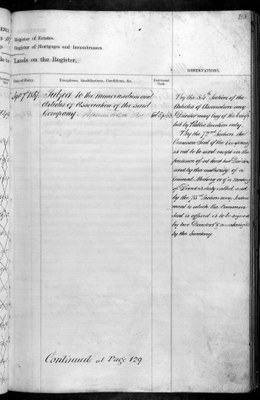 Register of Estates.
Register of Mortgages and Incumbrances
Lands on the Register.
OBSERVATIONS.
Date of Entry.
Exceptions, Qualifications, Conditions, &c.
Subject to the memorandum and
Articles of Association of the said
Company.
By the 54th Section of the
Articles of Association any
Director may buy of the Company
but by Public Auction only.
By the 72nd Section the
Common Seal of the Company
is not to be used except in the
presence of at least two Directors
and by the authority of a
General Meeting or of a meeting
of Directors duly called and
by the Section every Instrument
to which the Common
Seal is affixed is to be signed
by two Directors & countersigned
by the Secretary.
Continued at Page 129